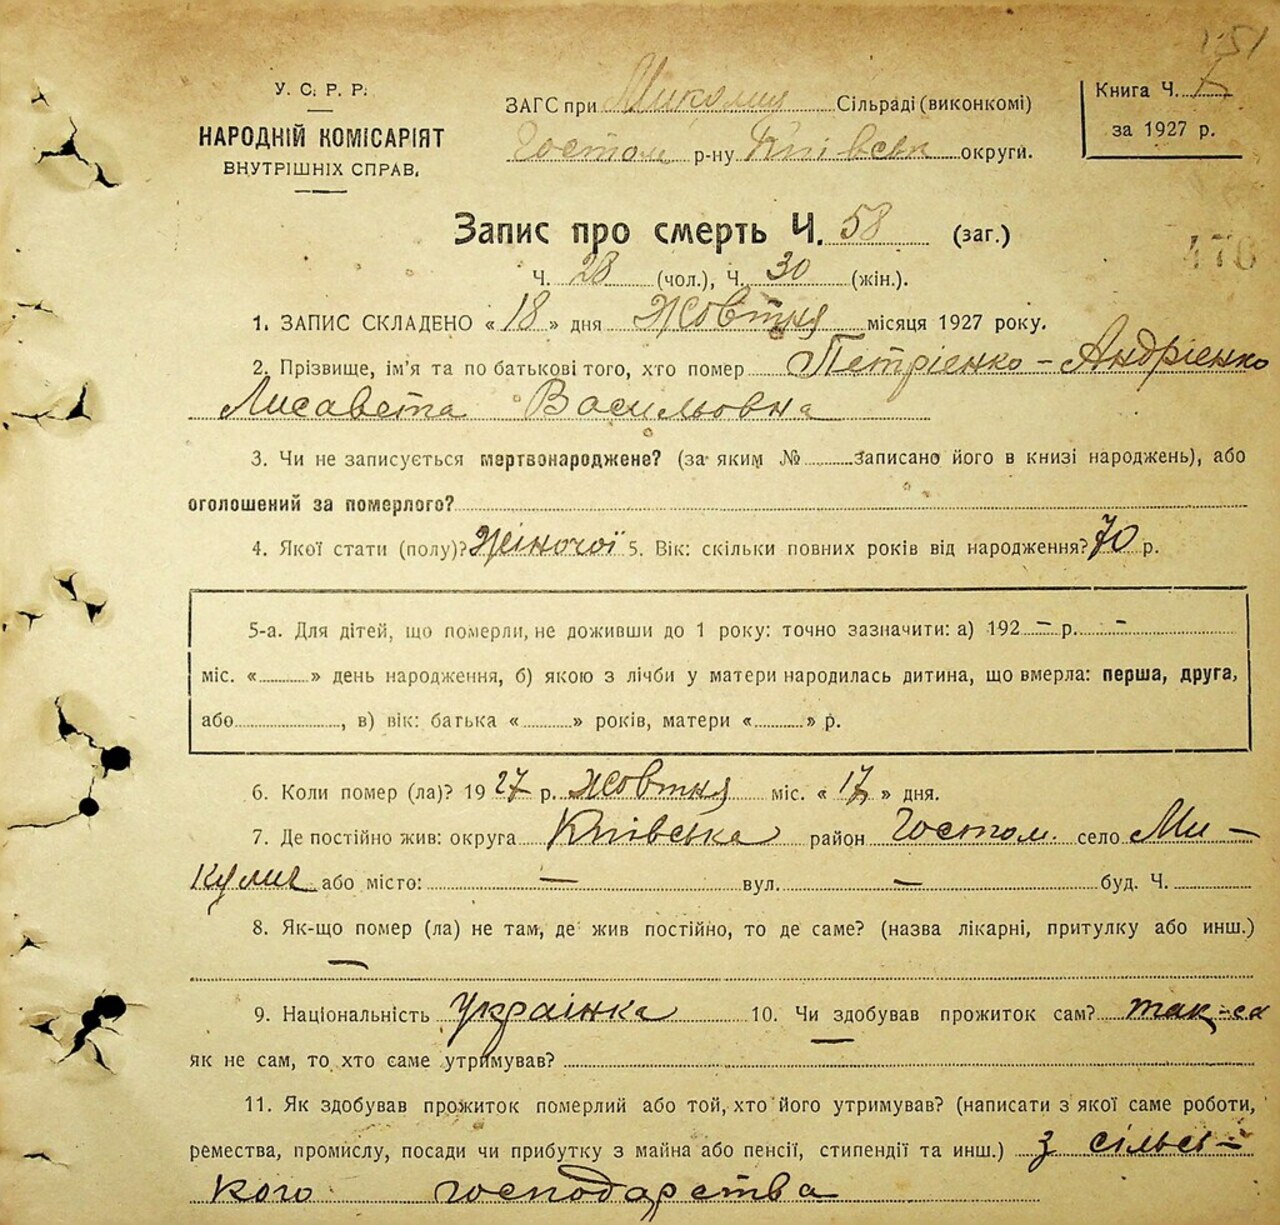 151
У. С. Р. Р.
НАРОДНІЙ КОМІСАРІЯТ
ВНУТРІШНІХ СПРАВ.
ЗАГС при Микулич Сільраді (виконкомі)
Гостом р-ну Київськ округи.
Книга Ч.
за 1927 р.
Запис про смерть Ч. 58 (заг.)
476
Ч. 28 (чол.), Ч. 30 (жін.).
1. ЗАПИС СКЛАДЕНО « 18 » дня Жовтня місяця 1927 року.
2. Прізвище, ім'я та по батькові того, хто помер Петрієнко - Андрієнко
Лисавета Васильовна
3. Чи не записується мертвонароджене? (за яким № записано його в книзі народжень), або
оголошений за померлого?
4. Якої стати (полу)? Жіночої 5. Вік: скільки повних років від народження? 70 р.
5-а. Для дітей, що померли, не доживши до 1 року: точно зазначити: а) 192 – р. –
міс. « » день народження, б) якою з лічби у матери народилась дитина, що вмерла: перша, друга,
або , в) вік: батька « » років, матери « » р.
6. Коли помер (ла)? 19 27 р. жовтня міс. « 17 » дня.
7. Де постійно жив: округа Київська район Гостом. село Ми-
кулич або місто: — вул. — буд. Ч.
8. Як-що помер (ла) не там, де жив постійно, то де саме? (назва лікарні, притулку або инш.)
—
9. Національність Українка 10. Чи здобував прожиток сам? так-са
як не сам, то хто саме утримував?
11. Як здобував прожиток померлий або той, хто його утримував? (написати з якої саме роботи,
ремества, промислу, посади чи прибутку з майна або пенсії, стипендії та инш.) з сільсь-
кого господарства